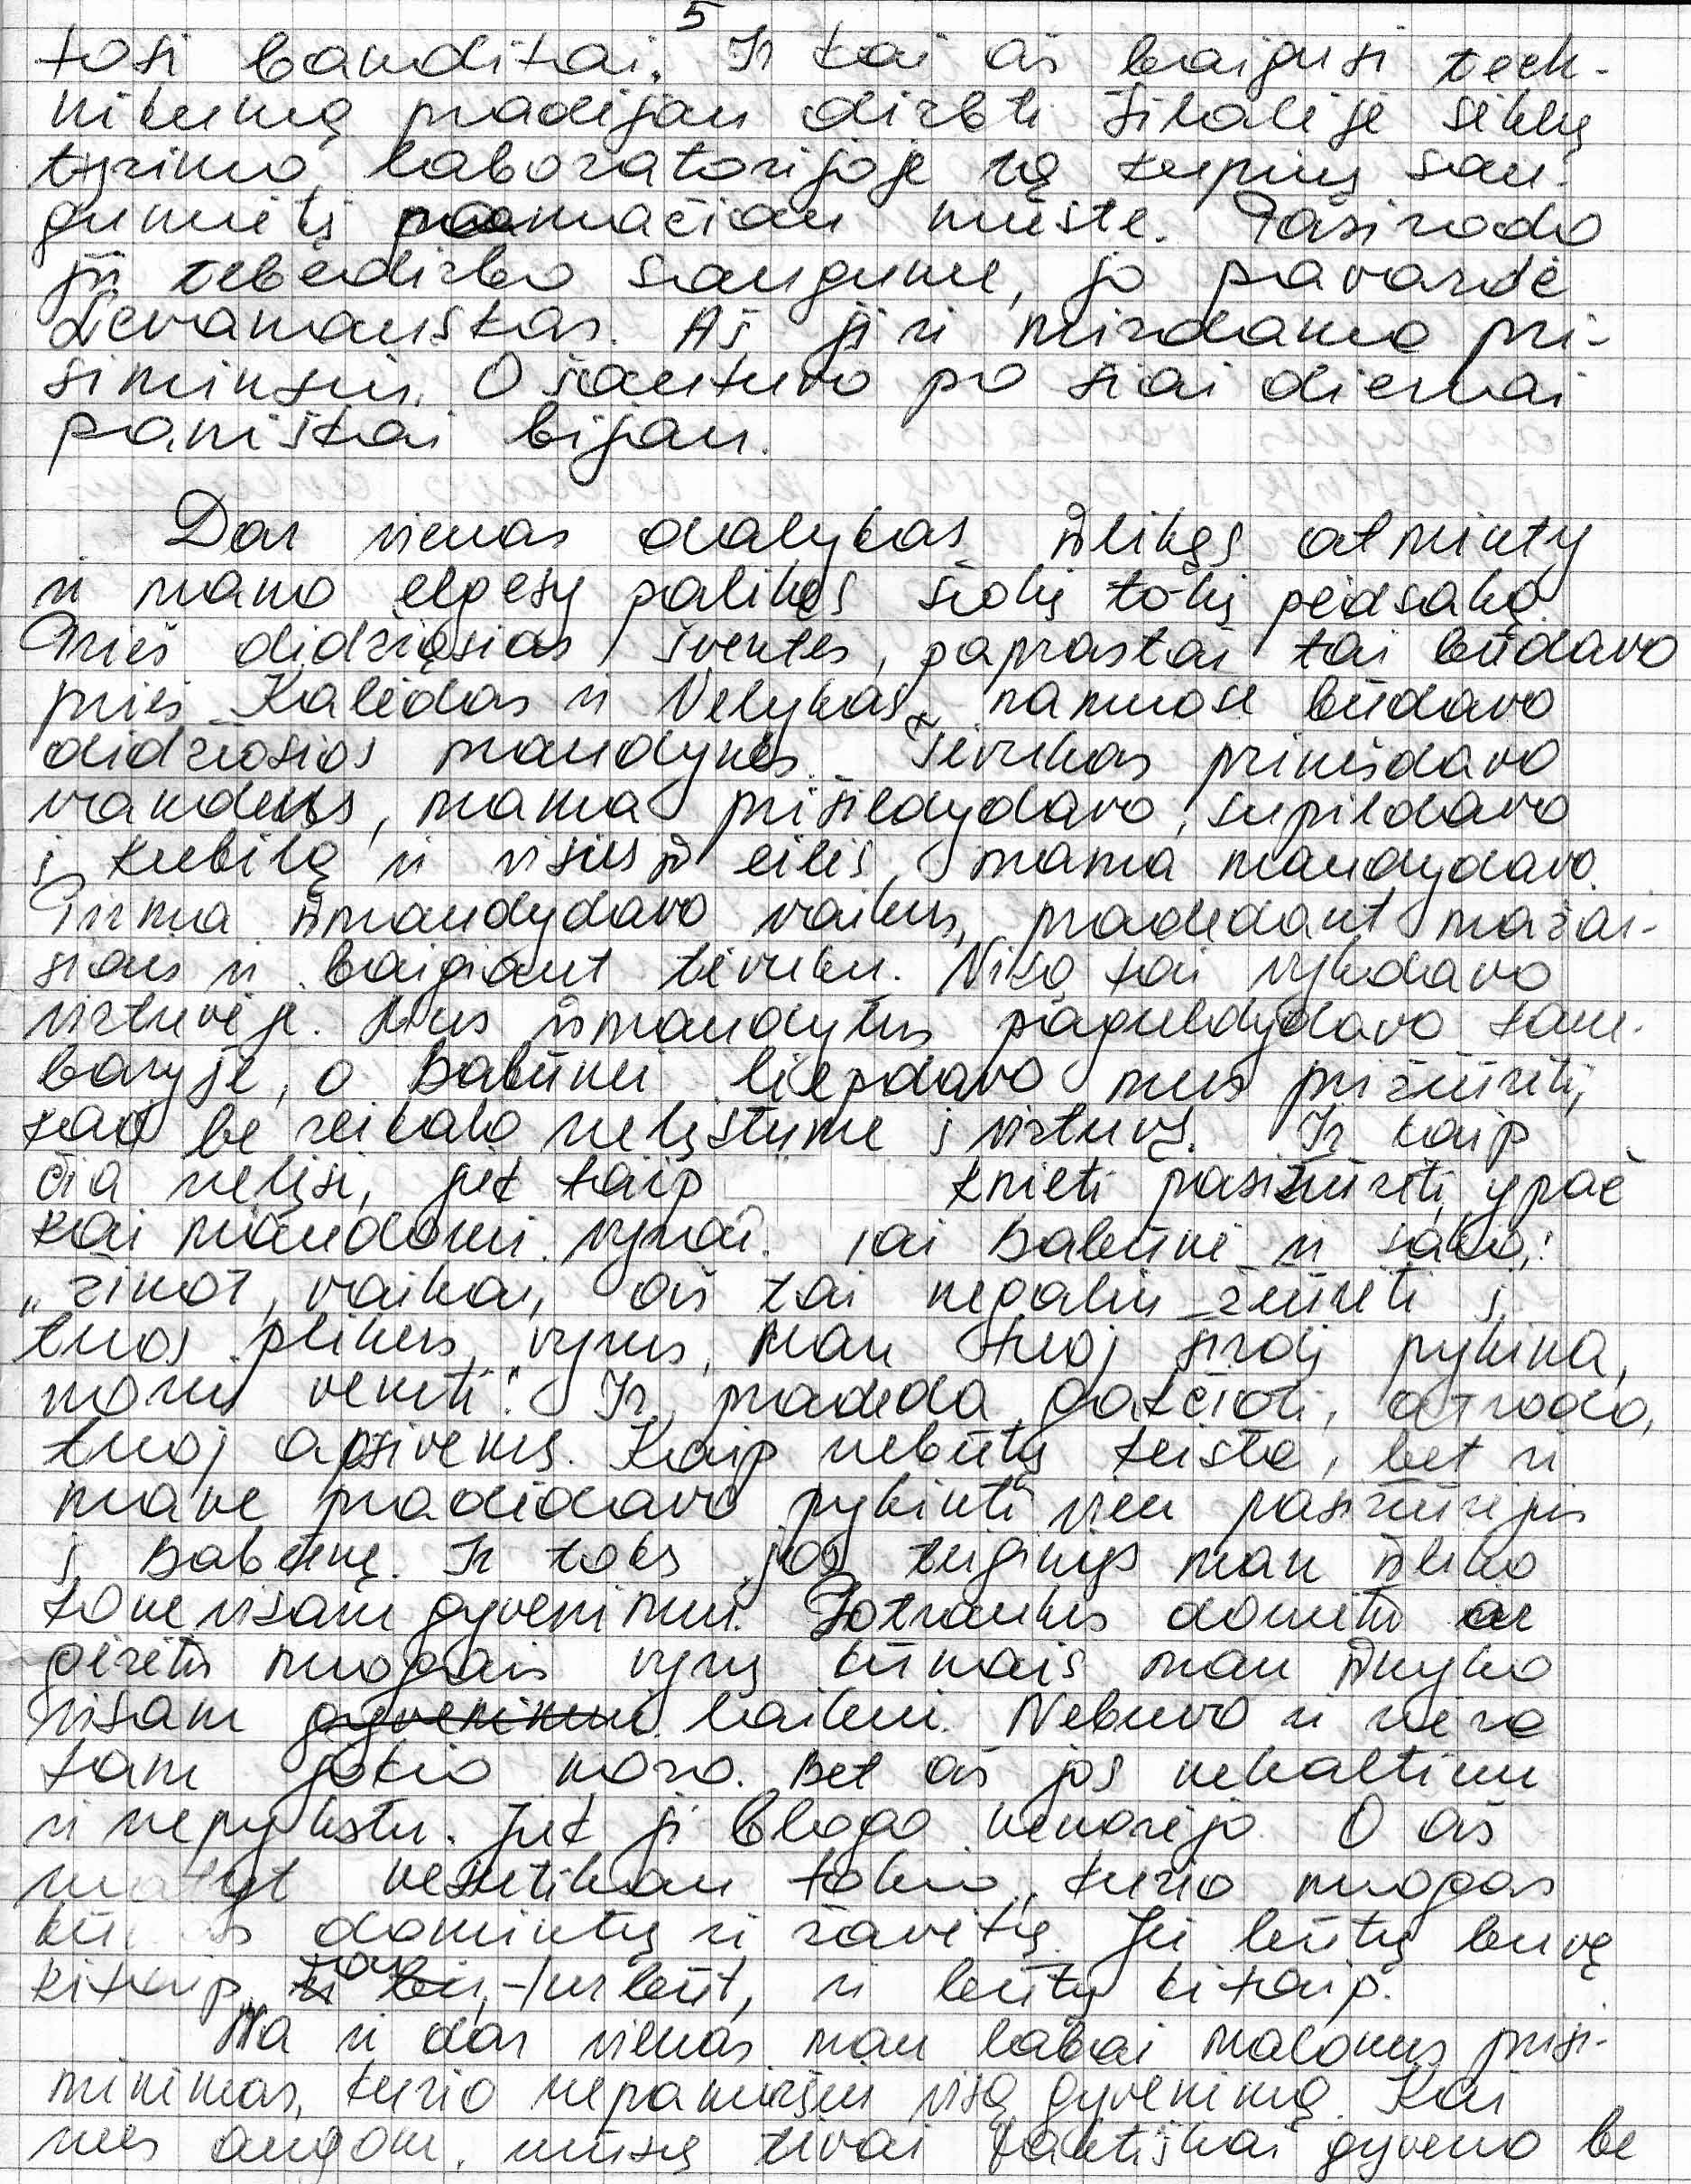 5
tosi banditai. Ir kai aš baigusi tech-
nikumą pradėjau dirbti Šilalėje sėklų
tyrimo laboratorijoje tą kuprių sau-
gumietį mačiau mieste. Pasirodo
jis tebedirbo saugume, jo pavardė
Levanauskas. Aš jį ir mirdama pri-
siminsiu. O šautuvo po šiai dienai
paniškai bijau.
Dar vienas dalykas išlikęs atminty
ir mano elgesy palikęs šiokį tokį pėdsaką.
Prieš didžiąsias šventes, paprastai tai būdavo
prieš Kalėdas ir Velykas, namuose būdavo
didžiosios maudynės. Tėvukas prinešdavo
vandens, mama prišildydavo, supildavo
į kubilą ir visus iš eilės mama maudydavo.
Pirma išmaudydavo vaikus, pradedant mažai-
siais ir baigiant tėvuku. Visa tai vykdavo
virtuvėje. Mus išmaudytus paguldydavo kam-
baryje, o Babūnei liepdavo mus prižiūrėti,
kad be reikalo nelįstume į virtuvę. Ir kaip
čia nelįsi, juk taip knieti pasižiūrėti, ypač
kai maudomi vyrai. Tai Babūnė ir sako:
„žinot, vaikai, aš tai negaliu žiūrėti į
tuos plikus vyrus, man tuoj širdį pykina,
noriu vemti“. Ir pradeda gokčioti, atrodo,
tuoj apsivems. Kaip nebūtų keista, bet ir
mane pradėdavo pykinti vien pasižiūrėjus
į Babūnę. Ir toks jos teiginys man išliko
kone visam gyvenimui. Potraukis domėtis ar
gėrėtis nuogais vyrų kūnais man išnyko
visam gyvenimui laikui. Nebuvo ir nėra
tam jokio noro. Bet aš jos nekaltinu
ir nepykstu. Juk ji blogo nenorėjo. O aš
matyt nesutikau tokio, kurio nuogas
kūnas domintų ir žavėtų. Jei būtų buvę
kitaip, tai turbūt, ir būtų kitaip.
Na ir dar vienas man labai malonus prisi-
minimas, kurio nepamiršiu visą gyvenimą. Kai
mes augom, mūsų tėvai faktiškai gyveno be